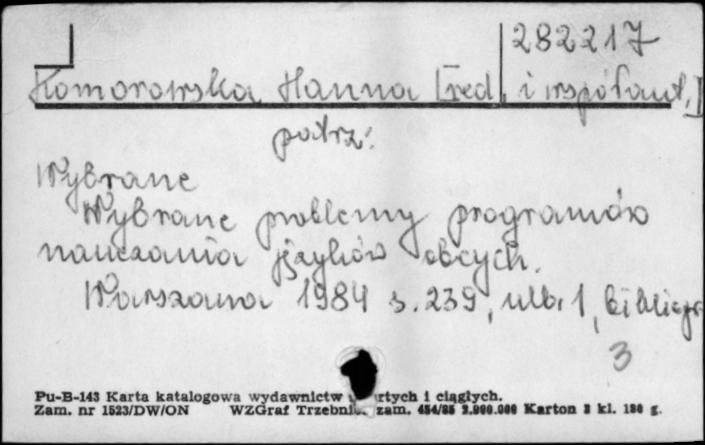 282217
Komorowska Hanna [red. i współaut.]
patrz:
Wybrane
Wybrane problemy programów
nauczania języków obcych.
Warszawa 1984 s. 239, nlb. 1, bibliogr
3
Pu-B-143 Karta katalogowa wydawnictw i ciągłych.
Zam. nr 1523/DW/ON WZGraf zam. 454/85 Karton 3 kl. g.